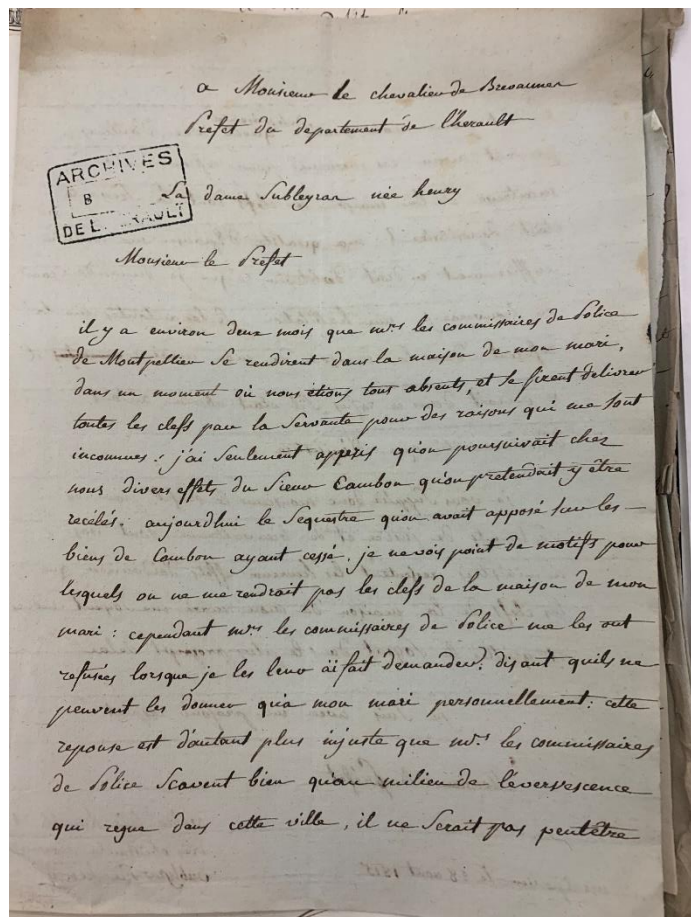 a Monsieur le chevalier de Brevannes
Prefet du departement de l'herault
ARCHIVES
B
DE L'HERAULT
La dame Subleyran née henry
Monsieur le Prefet
il y a environ deux mois que mrs les commissaires de Police
de Montpellier se rendirent dans la maison de mon mari,
dans un moment où nous etions tous absents, et se firent delivrer
toutes les clefs par la Servante pour des raisons qui me sont
inconnues : j'ai seulement appris qu'on poursuivait chez
nous divers effets du Sieur Cambon qu'on pretendait y être
recélés. aujourdhui le Sequestre qu'on avait apposé sur les
biens de Cambon ayant cessé, je ne vois point de motifs pour
lesquels on ne me rendrait pas les clefs de la maison de mon
mari : cependant mrs les commissaires de Police me les ont
refusées lorsque je les leur ai fait demander. disant quils ne
peuvent les donner qu'a mon mari personnellement : cette
reponse est d'autant plus injuste que mrs les commissaires
de Police Scavent bien qu'au milieu de l'evervescence
qui regne dans cette ville, il ne Serait pas peutêtre